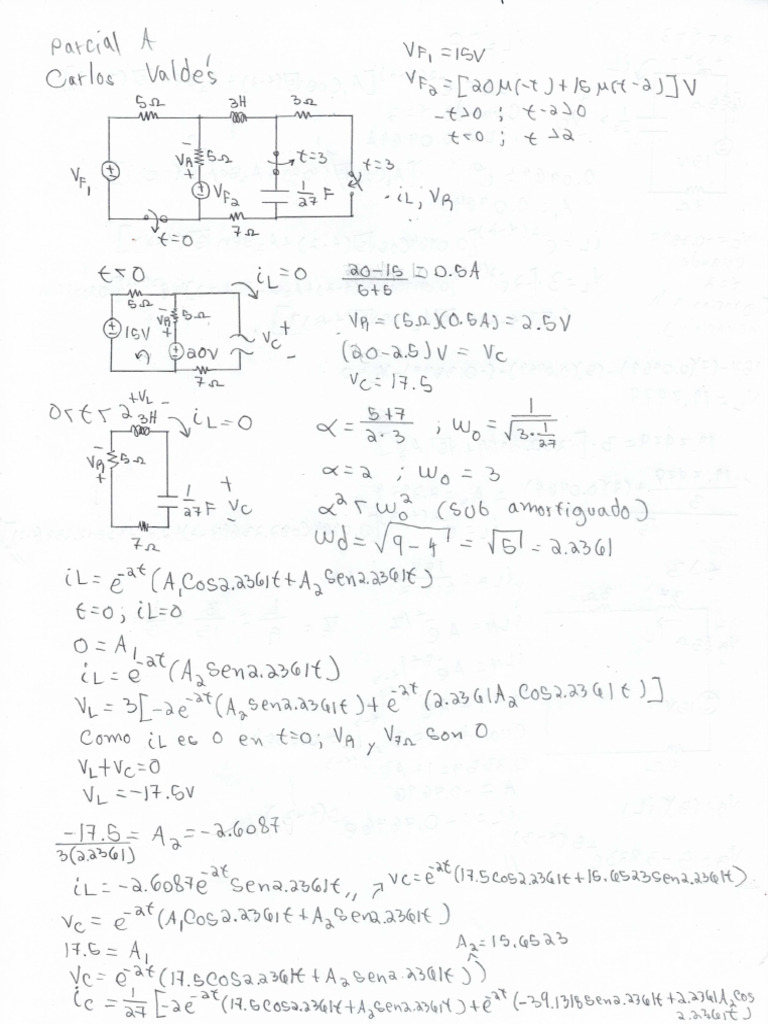 Parcial A
Carlos Valdés
VF₁ = 15V
VF₂ = [20μ(-t) + 15μ(t-2)] V
-t>0 ; t-2>0
t<0 ; t>2
5Ω 3H 3Ω
VF₁ - VR + 5Ω VF₂ t=3 1/27 F t=3
· iL, VR
t=0 7Ω
t<0 iL=0
5Ω
15V - VR + 5Ω 20V VC + -
7Ω
(20-15)/(5+5) = 0.5A
VR = (5Ω)(0.5A) = 2.5V
(20-2.5)V = VC
VC = 17.5
0<t<2 +VL- 3H iL=0
- VR + 5Ω 1/27 F + VC -
7Ω
α = (5+7)/(2·3) ; W₀ = 1/√(3·1/27)
α=2 ; W₀ = 3
α² < W₀² (sub amortiguado)
Wd = √(9-4) = √5 = 2.2361
iL = e^-2t (A₁Cos2.2361t + A₂Sen2.2361t)
t=0; iL=0
0 = A₁
iL = e^-2t (A₂Sen2.2361t)
VL = 3[-2e^-2t (A₂Sen2.2361t) + e^-2t (2.2361A₂Cos2.2361t)]
Como iL es 0 en t=0; VR y V7Ω son 0
VL+VC=0
VL = -17.5V
-17.5/3(2.2361) = A₂ = -2.6087
iL = -2.6087e^-2t Sen2.2361t,, ↗ VC = e^-2t (17.5Cos2.2361t + 15.6523Sen2.2361t)
VC = e^-2t (A₁Cos2.2361t + A₂Sen2.2361t)
17.5 = A₁
A₂ = 15.6523
VC = e^-2t (17.5Cos2.2361t + A₂Sen2.2361t)
iC = 1/27 [-2e^-2t (17.5Cos2.2361t + A₂Sen2.2361t) + e^-2t (-39.1318Sen2.2361t + 2.2361A₂Cos
2.2361t)